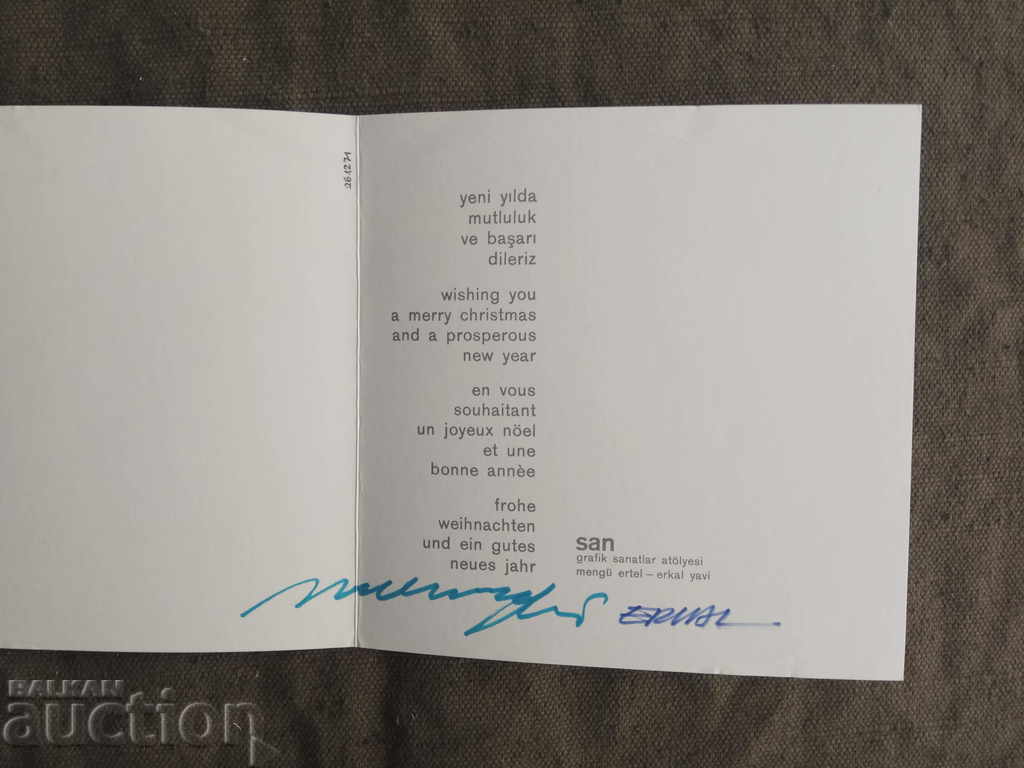 26.12.71
yeni yılda
mutluluk
ve başarı
dileriz
wishing you
a merry christmas
and a prosperous
new year
en vous
souhaitant
un joyeux nöel
et une
bonne annèe
frohe
weihnachten
und ein gutes
neues jahr
san
grafik sanatlar atölyesi
mengü ertel – erkal yavi
ERKAL
BALKAN
auction